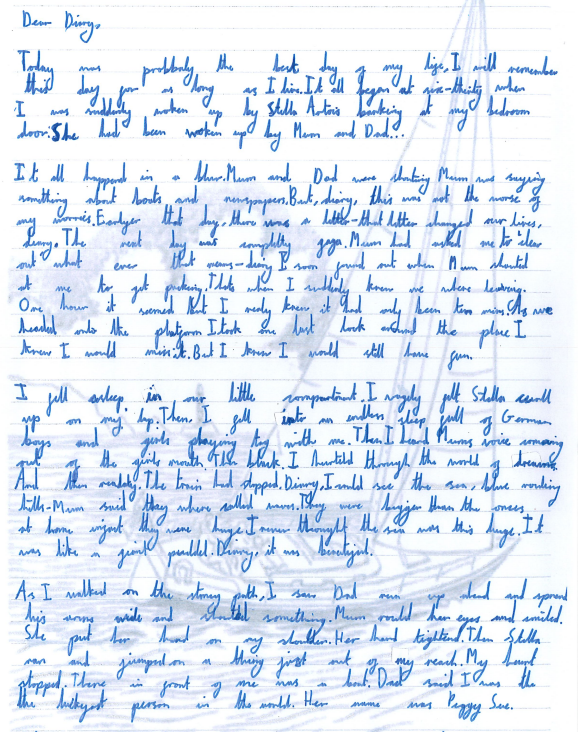 Dear Diary,
Today was probbaly the best day of my life, I will remember
this day for as long as I live. It all began at six-thirty when
I was suddenly woken up by Stella Artois barking at my bedroom
door. She had been woken up by Mum and Dad...
It all happend in a blur. Mum and Dad were shouting Mum was saying
something about boats and newspapers. But, diary, this was not the worse of
my worries. Earlyer that day, there was a letter-that letter changed our lives,
diary. The next day was completly gaga. Mum had asked me to clear
out what ever that means-diary I soon found out when Mum shouted
at me to get packing. Thats when I suddenly knew we where leaving.
One hour it seemed But I realy knew it had only been ten mins. As we
headed onto the platform I took one last look around the place I
knew I would miss it. But I knew I would still have fun.
I fell asleep in our little compartment. I vagely felt Stella curll
up on my lap. Then, I fell into an endless sleep full of German
boys and girls playing tag with me. Then I heard Mums voice coming
out of the girls mouth. Then black. I hurtled through the world of dreams.
And then reality. The train had stopped. Diary, I could see the sea, blue rocking
hills-Mum said they where called waves. They were bigger than the ones
at home infact they were huge. I never throught the sea was this huge. It
was like a giant puddel. Diary, it was beautiful.
As I walked on the stoney path, I saw Dad run up ahead and spread
his arms wide and shouted something. Mum rould her eyes and smiled.
She put her hand on my shoulder. Her hand tightend. Then Stella
ran and jumped on a thing just out of my reach. My heart
stopped. There in front of me was a boat. Dad said I was the
the luckyest person in the world. Her name was Peggy Sue.